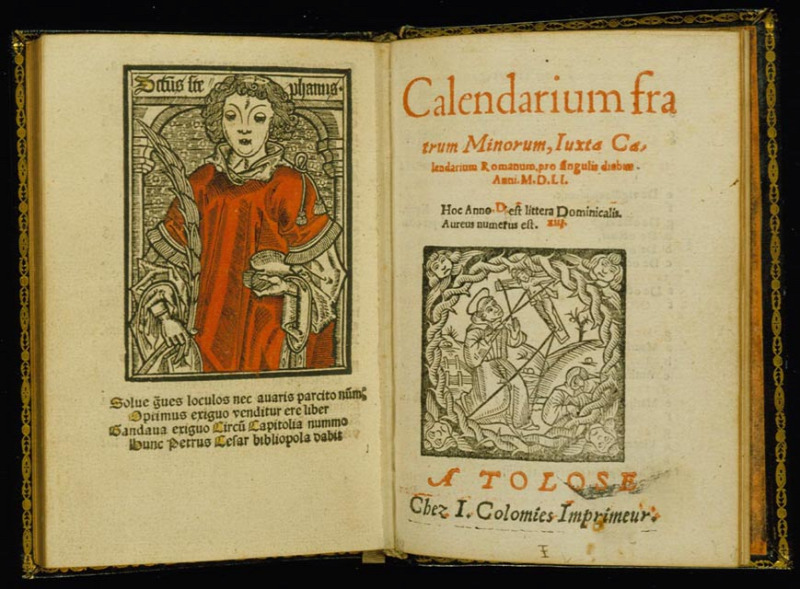 Sctūs ste
phanus.
Solue q̄ues loculos nec avaris parcito nūmis
Optimus exiguo venditur ere liber
Gandava exiguo Circū Capitolia nummo
Hunc Petrus Cesar bibliopola dabit
Calendarium fra
trum Minorum, Iuxta Ca,
lendarium Romanum, pro singulis diebus.
Anni. M. D. LI.
Hoc Anno. D. est littera Dominicalis.
Aureus numerus est.
A TOLOSE
Chez I. Colomies Imprimeur.